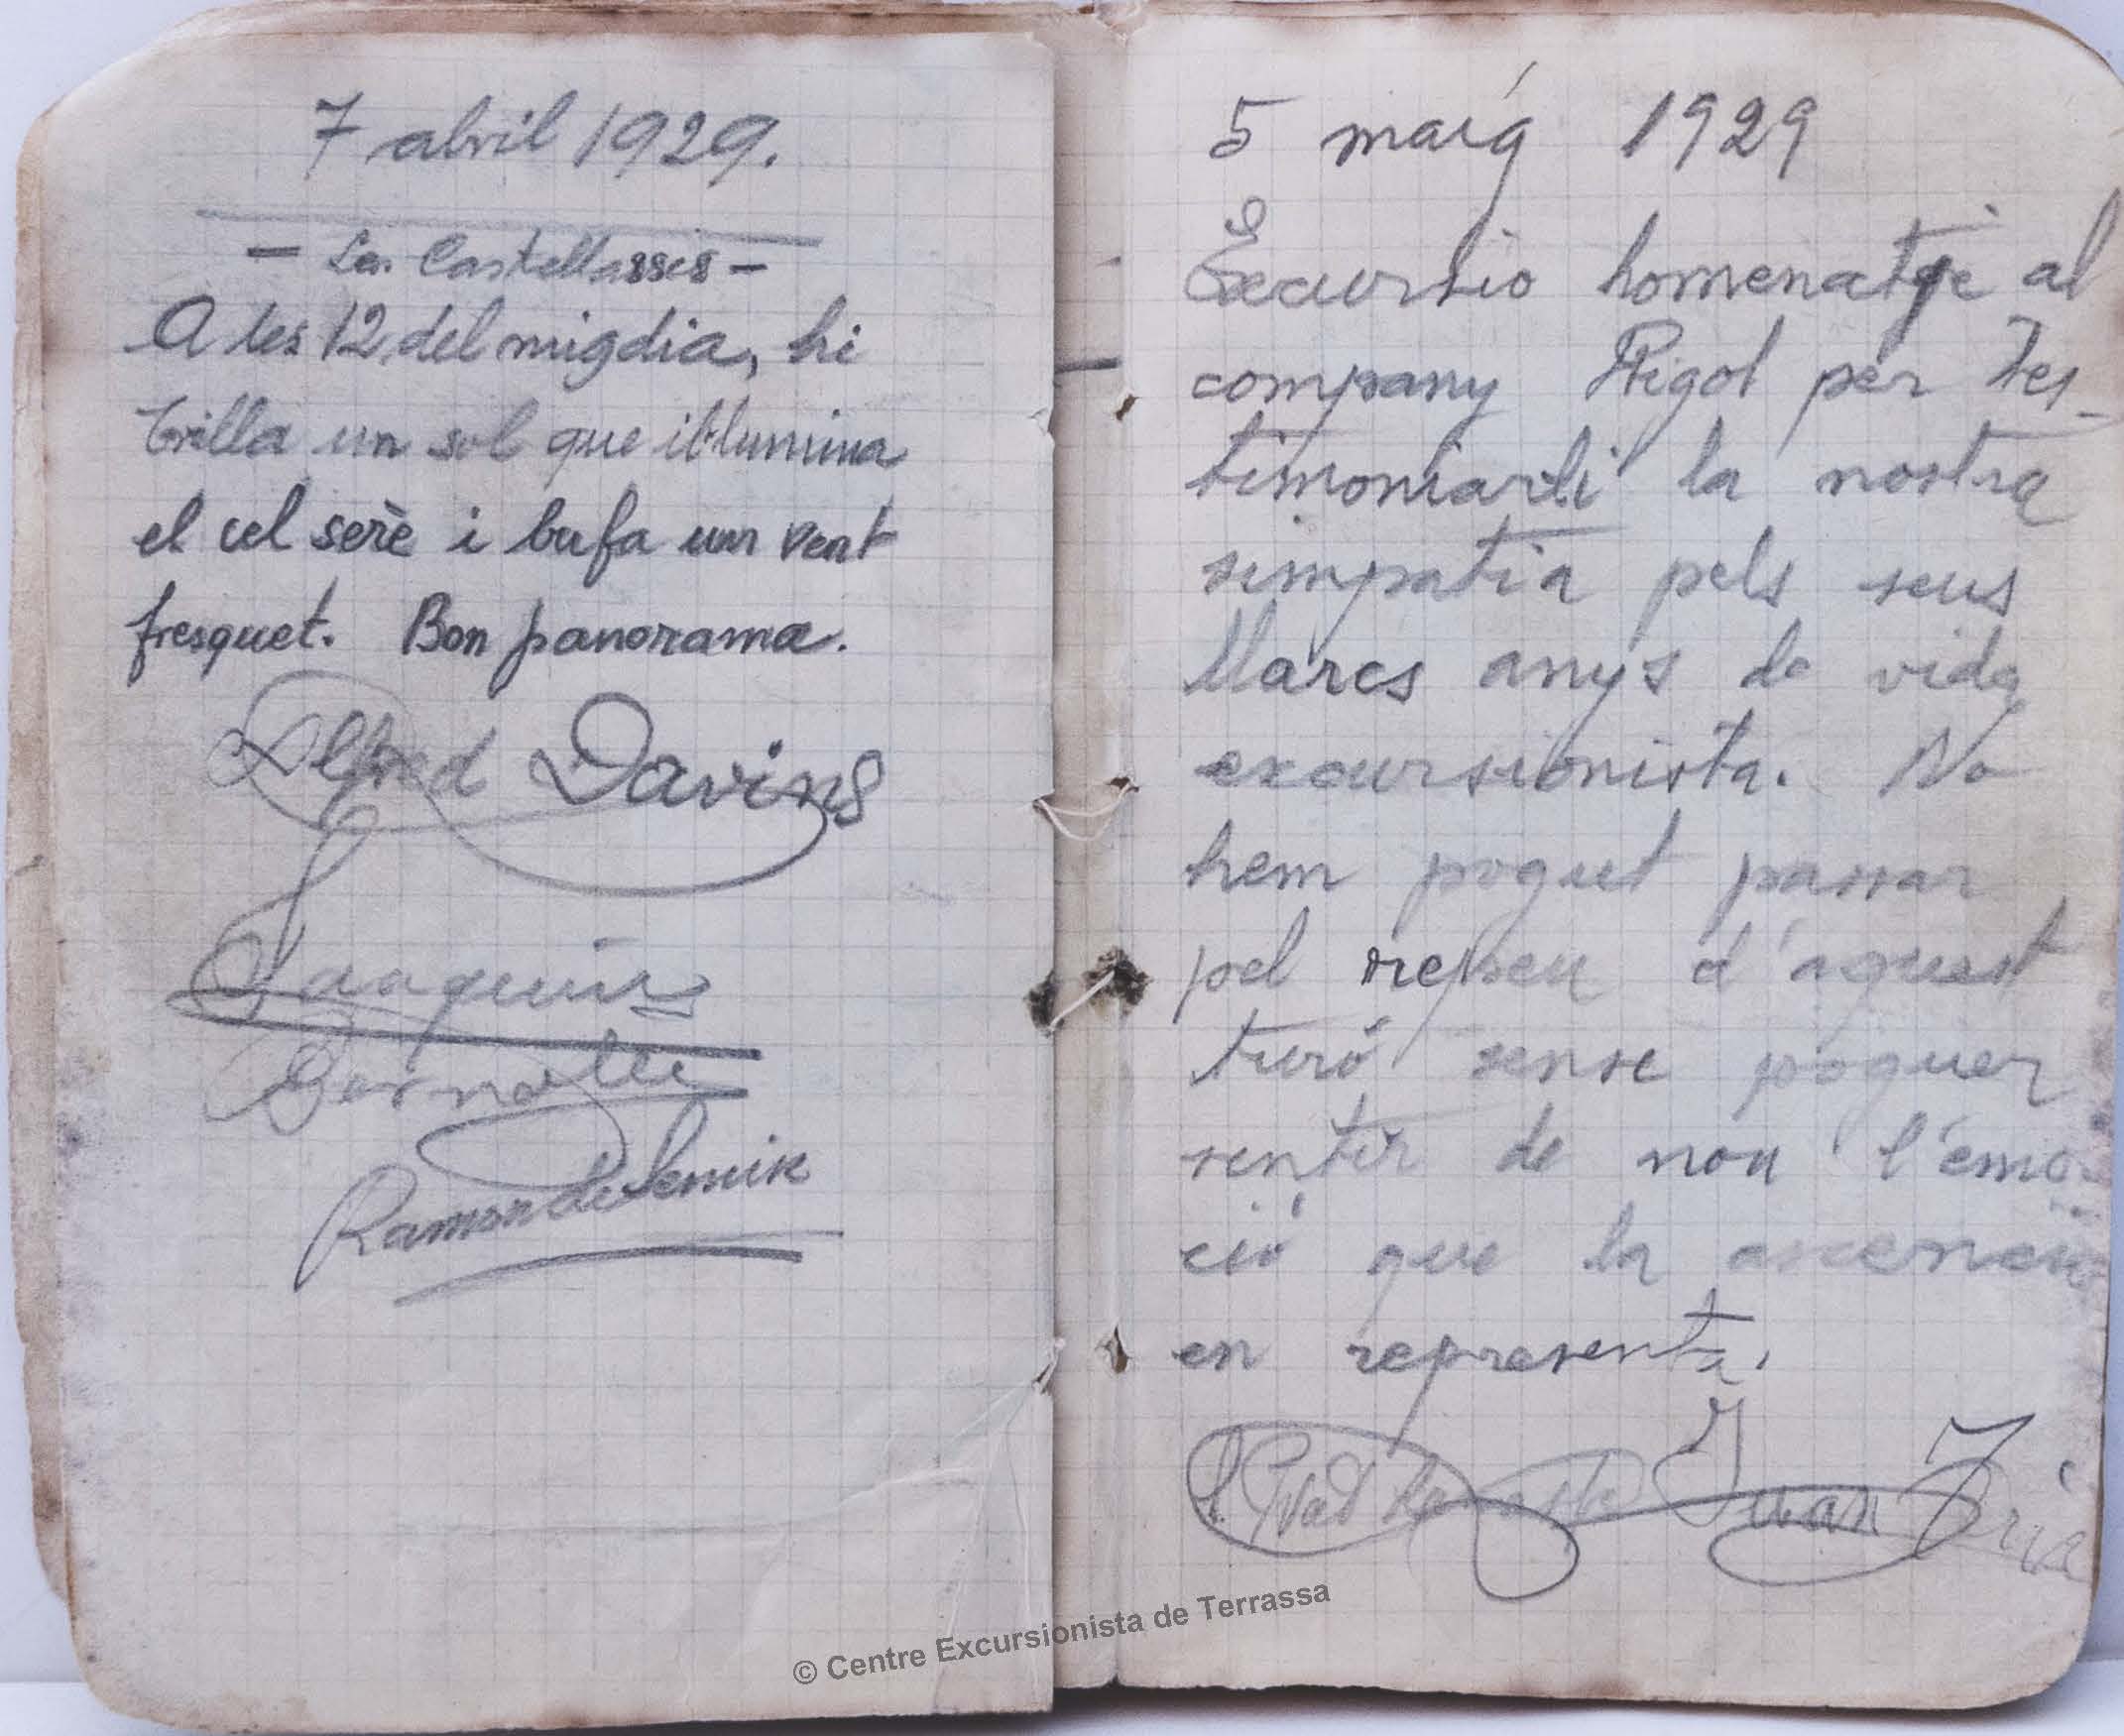 7 abril 1929.
- Les Castellasses -
A les 12 del migdia, hi
brilla un sol que il·lumina
el cel serè i bufa un vent
fresquet. Bon panorama.
Alfred Davins
Ramon de
5 maig 1929
Excursio homenatge al
company Rigol per tes-
timoniarli la nostra
simpatia pels seus
llarcs anys de vida
excursionista. No
hem pogut passar
pel repeu d'aquest
turó sense poguer
sentir de nou l'emo-
ció que la ascenció
en representa.
Juan
© Centre Excursionista de Terrassa